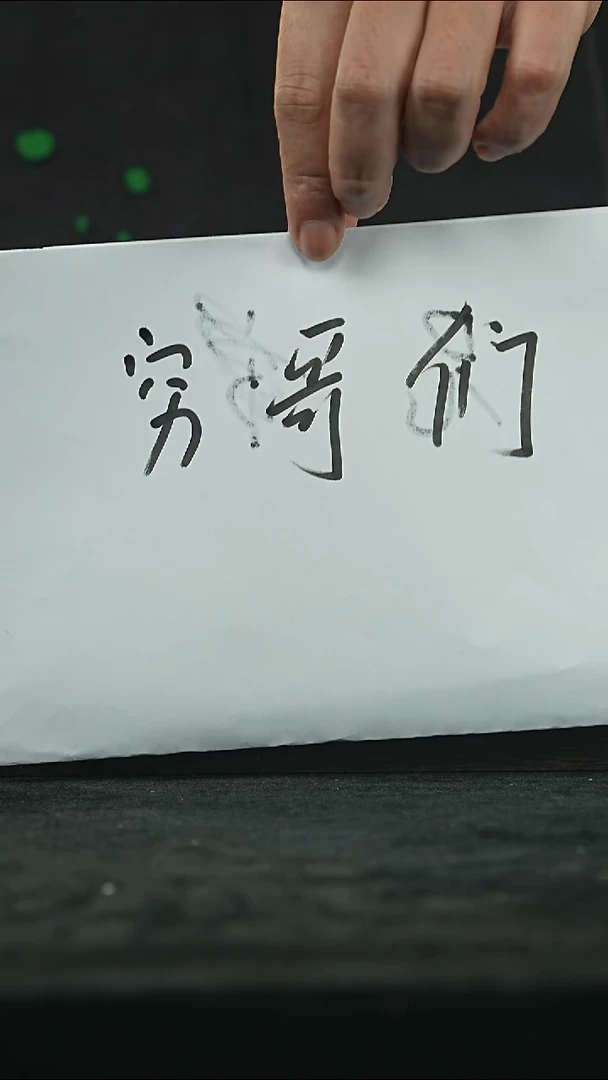 穷哥们